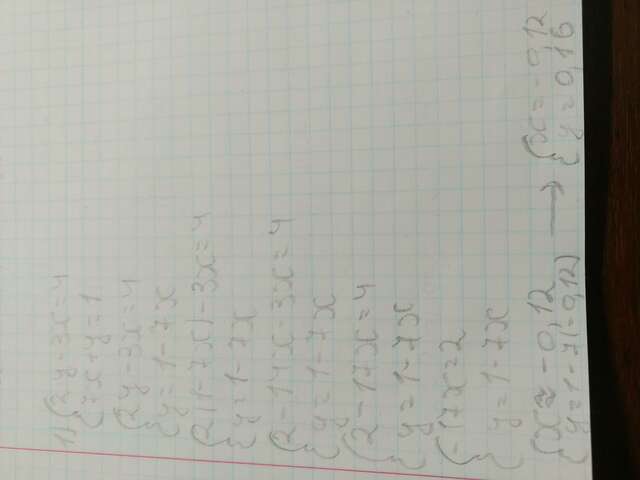 1) {2y-3x=4
{7x+y=1
{2y-3x=4
{y=1-7x
{2(1-7x)-3x=4
{y=1-7x
{2-14x-3x=4
{y=1-7x
{2-17x=4
{y=1-7x
{-17x=2
{y=1-7x
{x≈-0,12 → {x=-0,12
{y=1-7(-0,12) {y=0,16